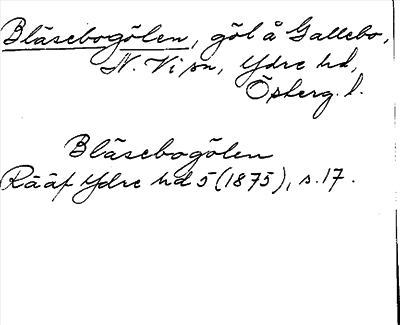 Bläsebogölen, göl å Gallebo,
N. Vi sn, Ydre hd,
Österg. l.
Bläsebogölen
Rääf Ydre hd 5 (1875), s. 17.